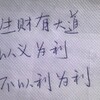 生财有大道
以义为利
不以利为利